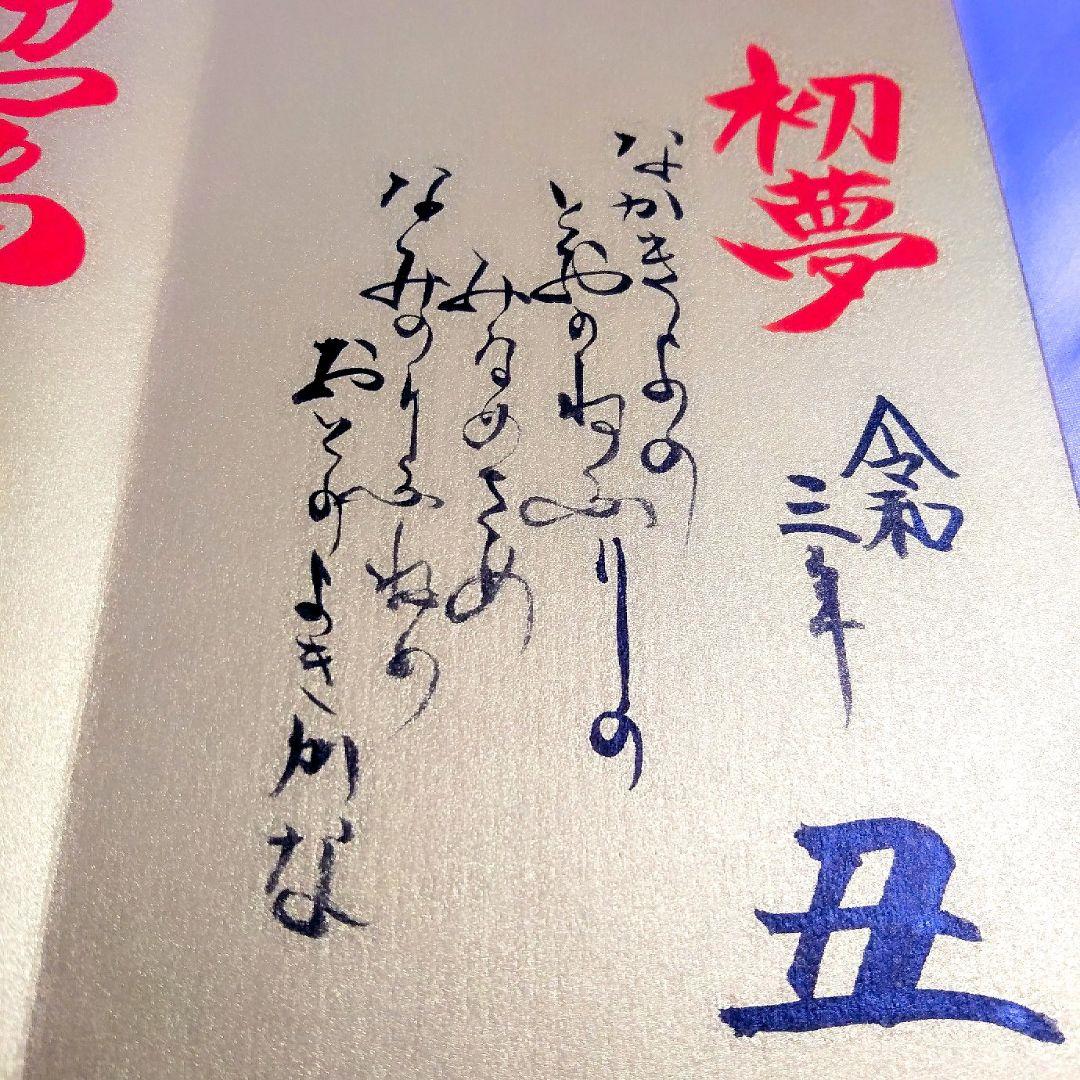 初夢
令和
三年
丑
なかきよの
とおのねふりの
みなめさめ
なみのりふねの
おとのよきかな